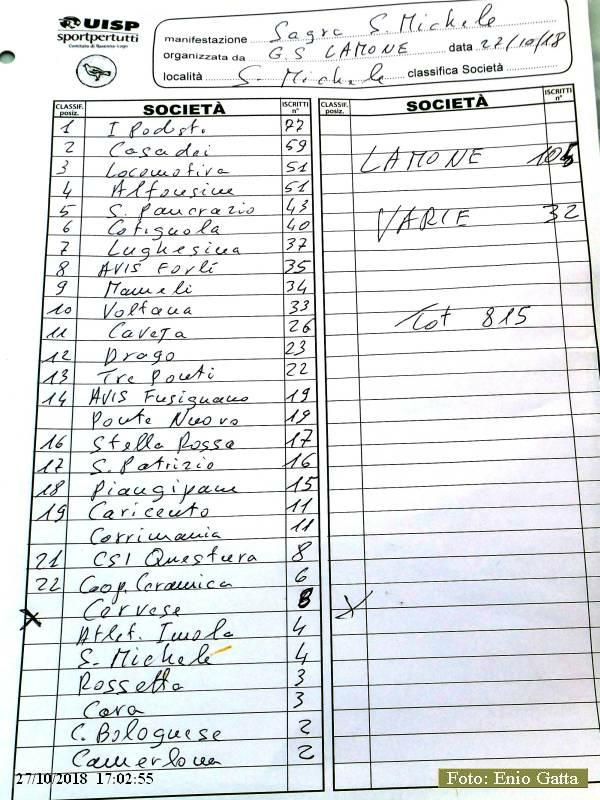 UISP
sportpertutti
Comitato di Ravenna-Lugo
manifestazione Sagra S. Michele
organizzata da G.S LAMONE data 27/10/18
località S. Michele classifica Società
CLASSIF. posiz. SOCIETÀ ISCRITTI n°
1 I Podisti 77
2 Casadei 59
3 Locomotiva 51
4 Alfonsine 51
5 S. Pancrazio 43
6 Cotignola 40
7 Lughesina 37
8 AVIS Forlì 35
9 Mameli 34
10 Voltana 33
11 Caveja 26
12 Drago 23
13 Tre Ponti 22
14 AVIS Fusignano 19
Ponte Nuovo 19
16 Stella Rossa 17
17 S. Patrizio 16
18 Piangipane 15
19 Caricento 11
Corrimania 11
21 CSI Questura 8
22 Coop. Ceramica 6
X Cervese 8
Atlet. Imola 4
S. Michele 4
Rossetta 3
Cava 3
C. Bolognese 2
Camerlona 2
CLASSIF. posiz. SOCIETÀ ISCRITTI n°
LAMONE 105
VARIE 32
Tot 815
X
27/10/2018 17:02:55
Foto: Enio Gatta